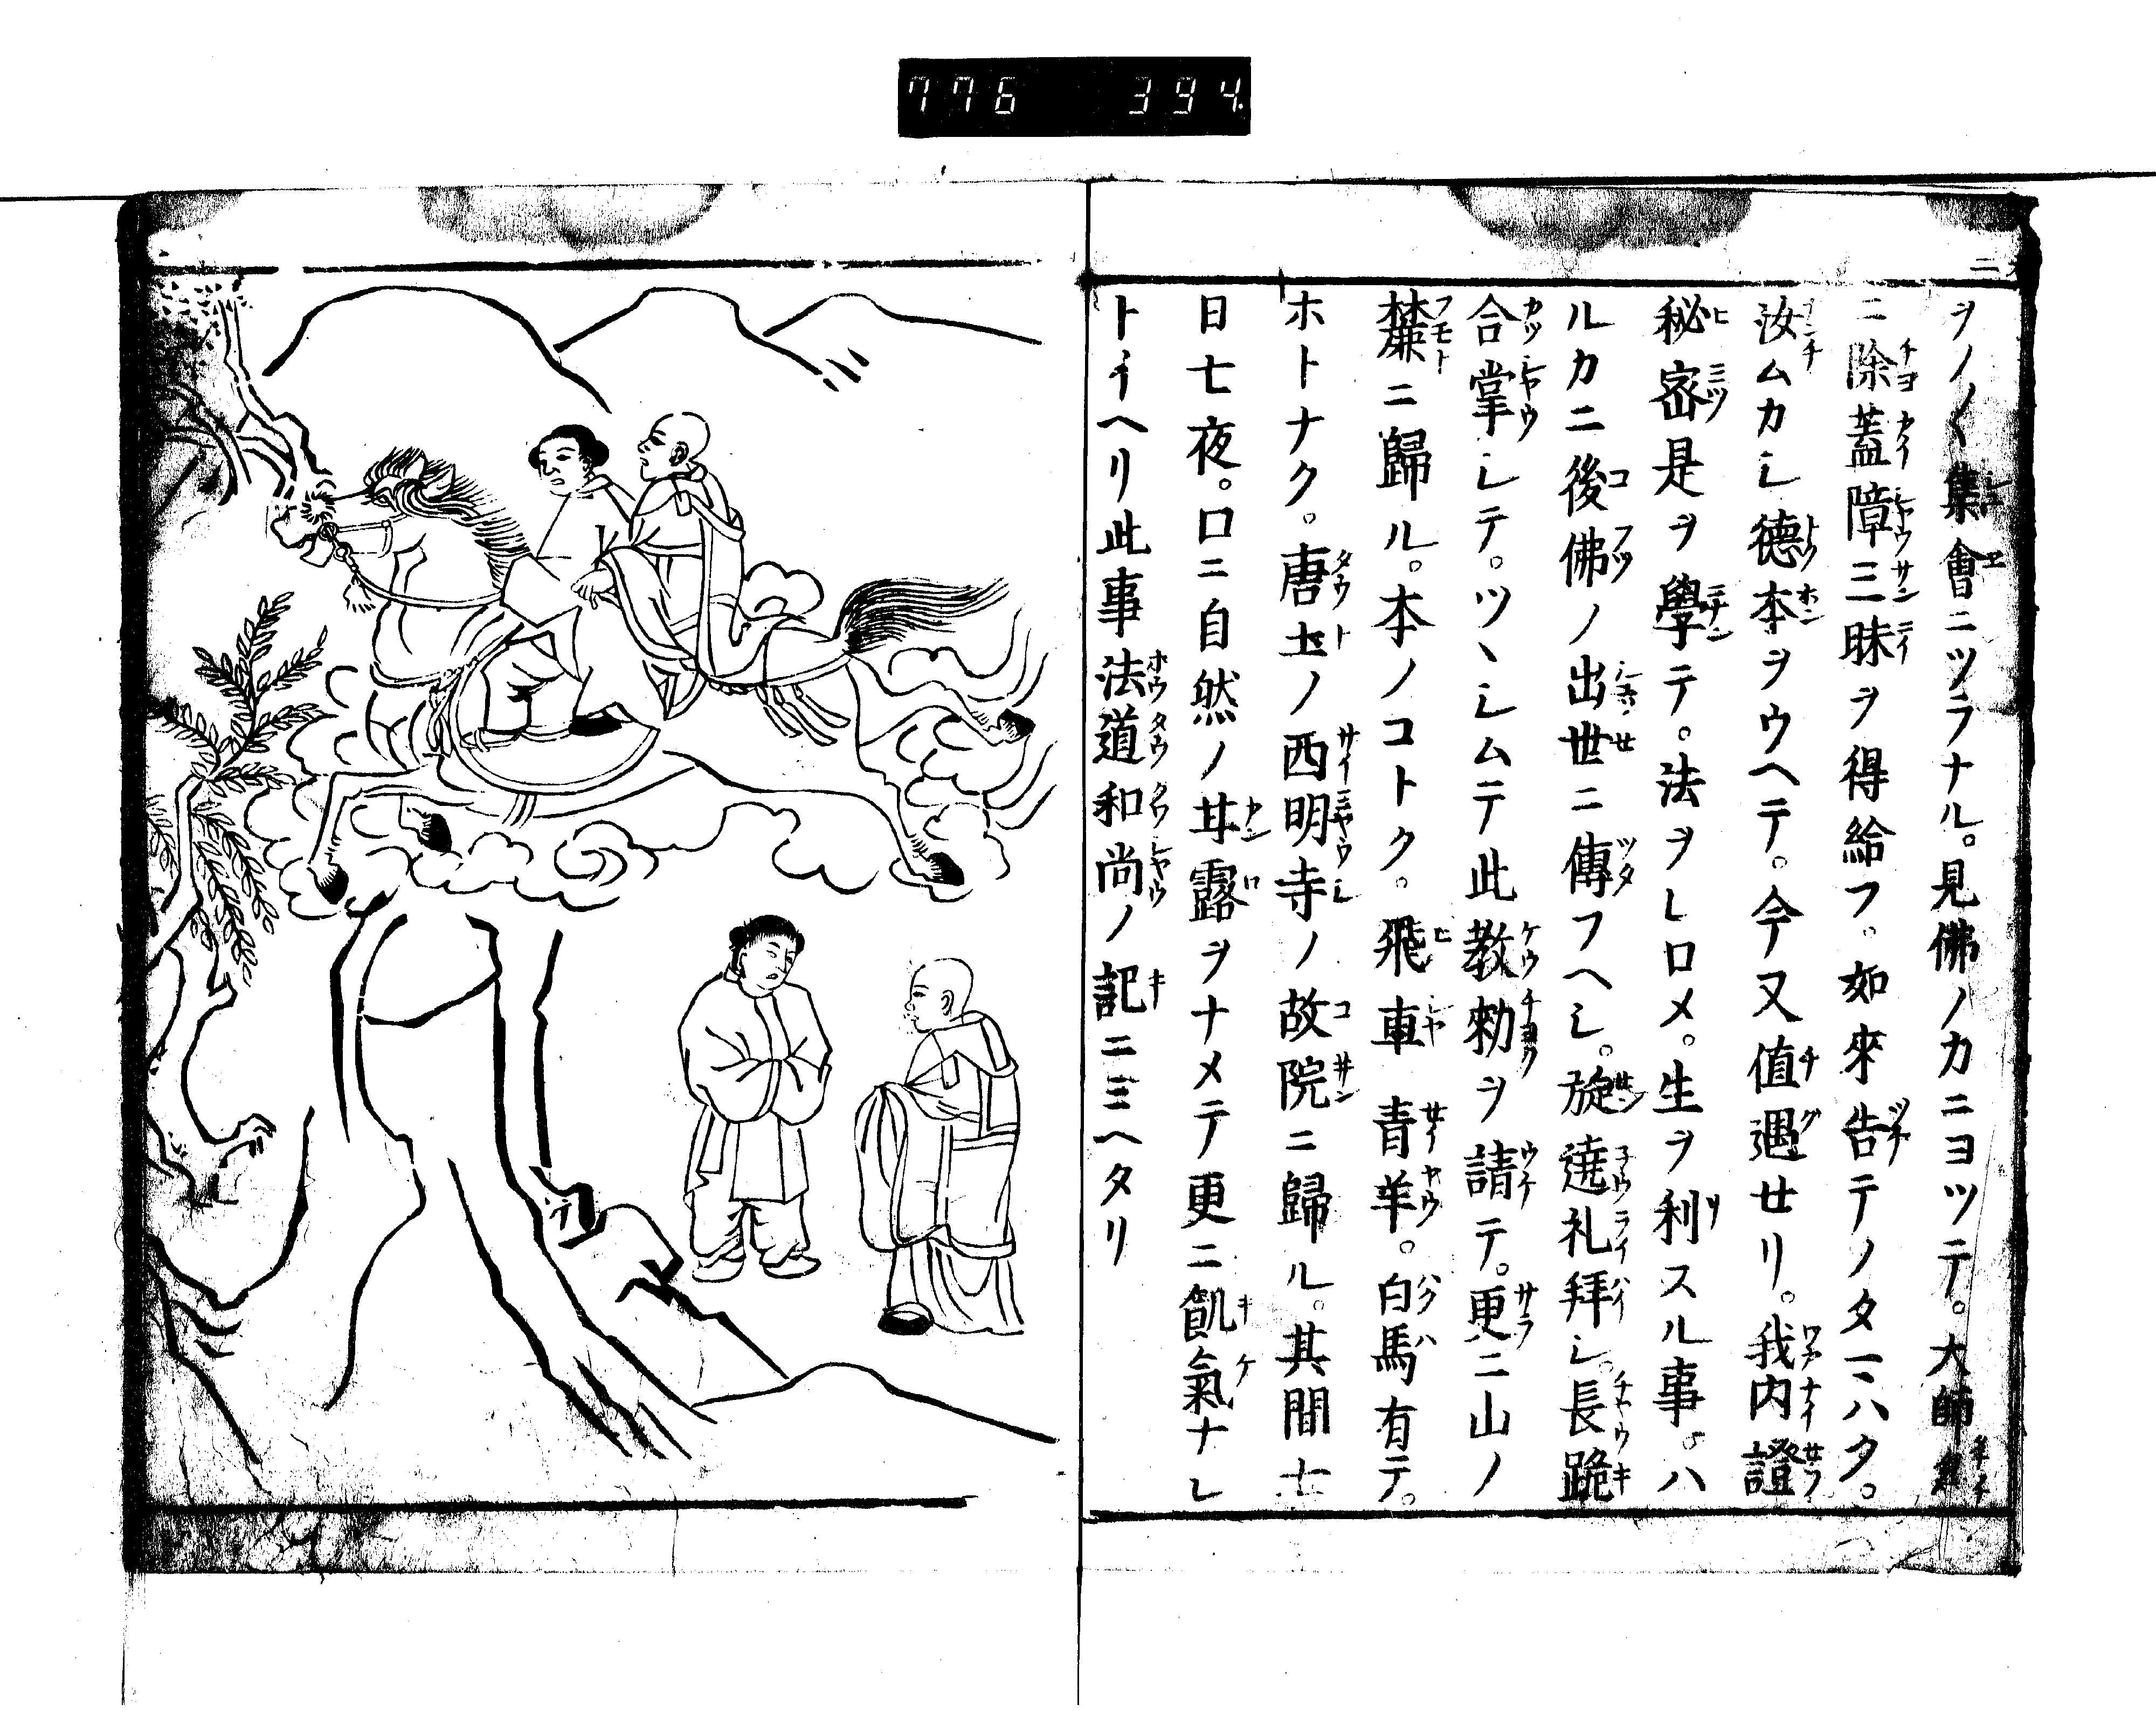 776 394
ヲノ〱集會ニツラナル。見佛ノカニヨツテ。大師
ニ除蓋障三昧ヲ得給フ。如來告テノタマハク。
汝ムカシ德本ヲウヘテ。今又值遇セリ。我內證
秘密是ヲ學テ。法ヲヒロメ。生ヲ利スル事。ハ
ルカニ後佛ノ出世ニ傳フヘシ。旋遶礼拜シ。長跪
合掌シテ。ツヽシムテ此教勅ヲ請テ。更ニ山ノ
麓ニ歸ル。本ノコトク。飛車青羊。白馬有テ。
ホトナク。唐土ノ西明寺ノ故院ニ歸ル。其間七
日七夜。口ニ自然ノ甘露ヲナメテ更ニ飢氣ナシ
トイヘリ此事法道和尚ノ記ニミヘタリ